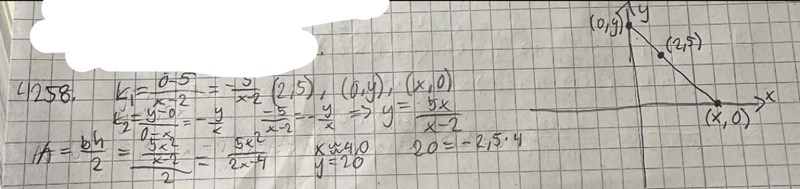 4258. k₁ = (0-5)/(x-2) = -5/(x-2) (2,5), (0,y), (x,0)
k₂ = (y-0)/(0-x) = -y/x -5/(x-2) = -y/x ⇒ y = 5x/(x-2)
A = bh/2 = (5x²/(x-2))/2 = 5x²/(2x-4) x≈4,0 20 = -2,5·4
y=20
(0,y) y
(2,5)
x
(x,0)